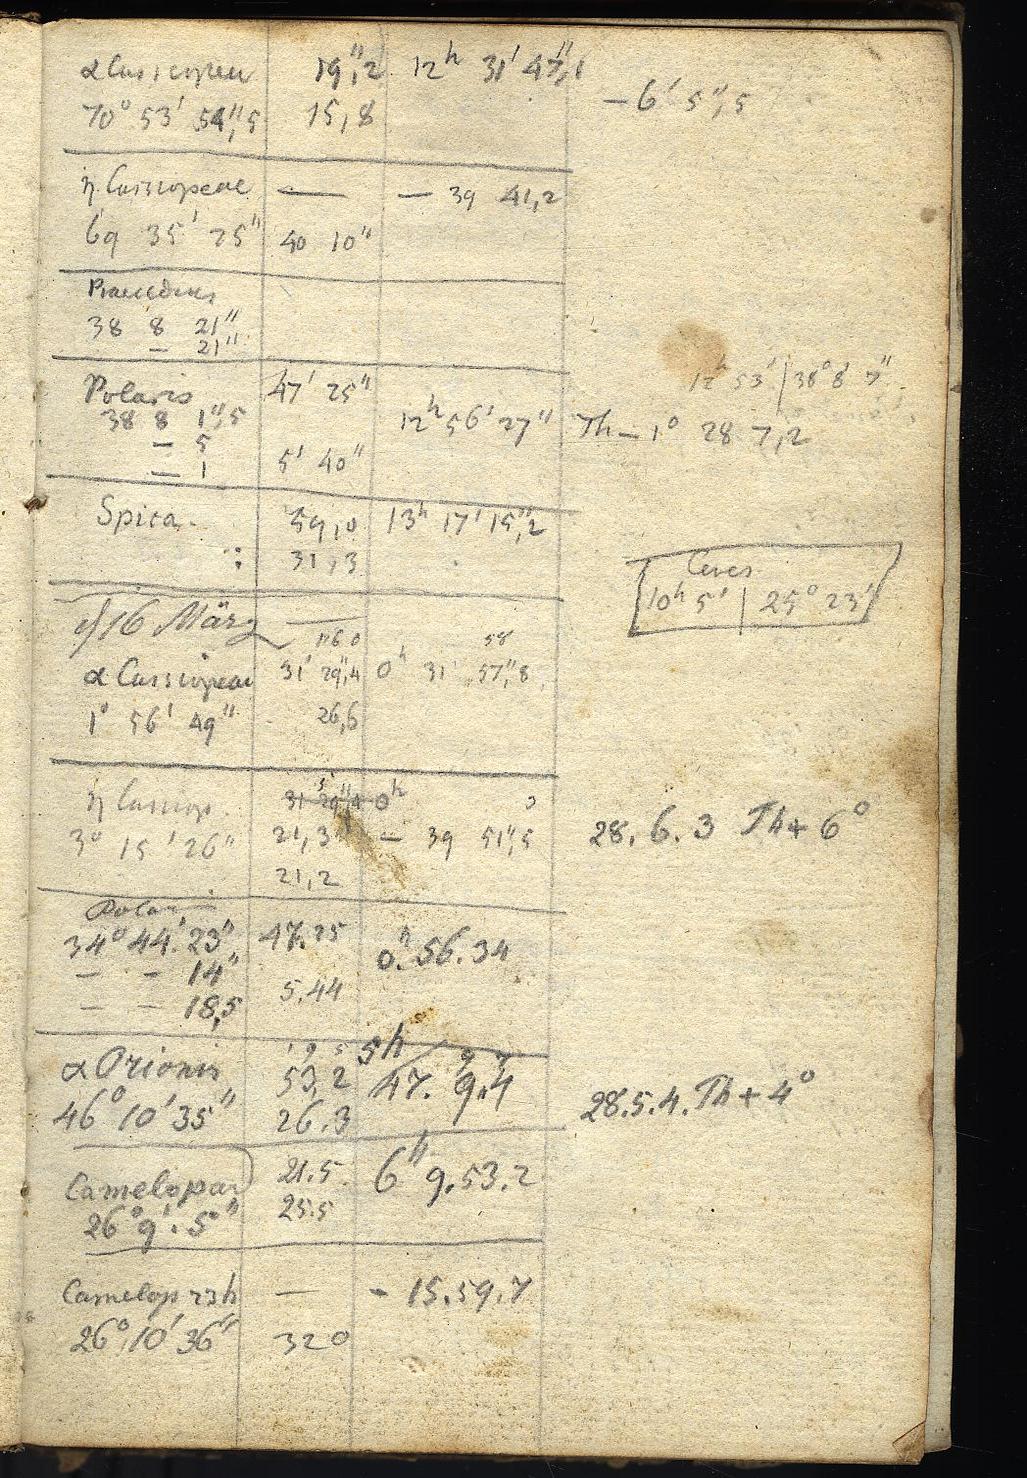 α Cassiopeae 19",2 12h 31' 47",1
70° 53' 54",5 15,8 — 6' 5",5
η Cassiopeae — — 39 41,2
69 35' 25" 40 10"
Praecedens
38 8 21"
— 21"
12h 53' | 38° 8' 7"
Polaris 47' 25"
38 8 1",5 12h 56' 27" Th — 1° 28 7,2
— 5
— 1 5' 40"
Spica 59,0 13h 17' 15",2
: 31,3
Ceres
10h 5' | 25° 23'
16 März —
58
α Cassiopeae 31' 29",4 0h 31' 57",8
1° 56' 49" 26,6
η Cassiop. 31 29",4 0h
3° 15' 26" 21,3 — 39 51",5 28. 6. 3 Th + 6°
21,2
Polar
34° 44' 23" 47.25 0h. 56. 34
— — 14"
— — 18,5 5.44
α Orionis 53,2 5h 47. 9.4
46° 10' 35" 26.3 28.5.4. Th + 4°
Camelopar 21.5. 6h 9.53.2
26° 9'. 5" 25.5
Camelop 23h — - 15.59.7
26° 10' 36" 320